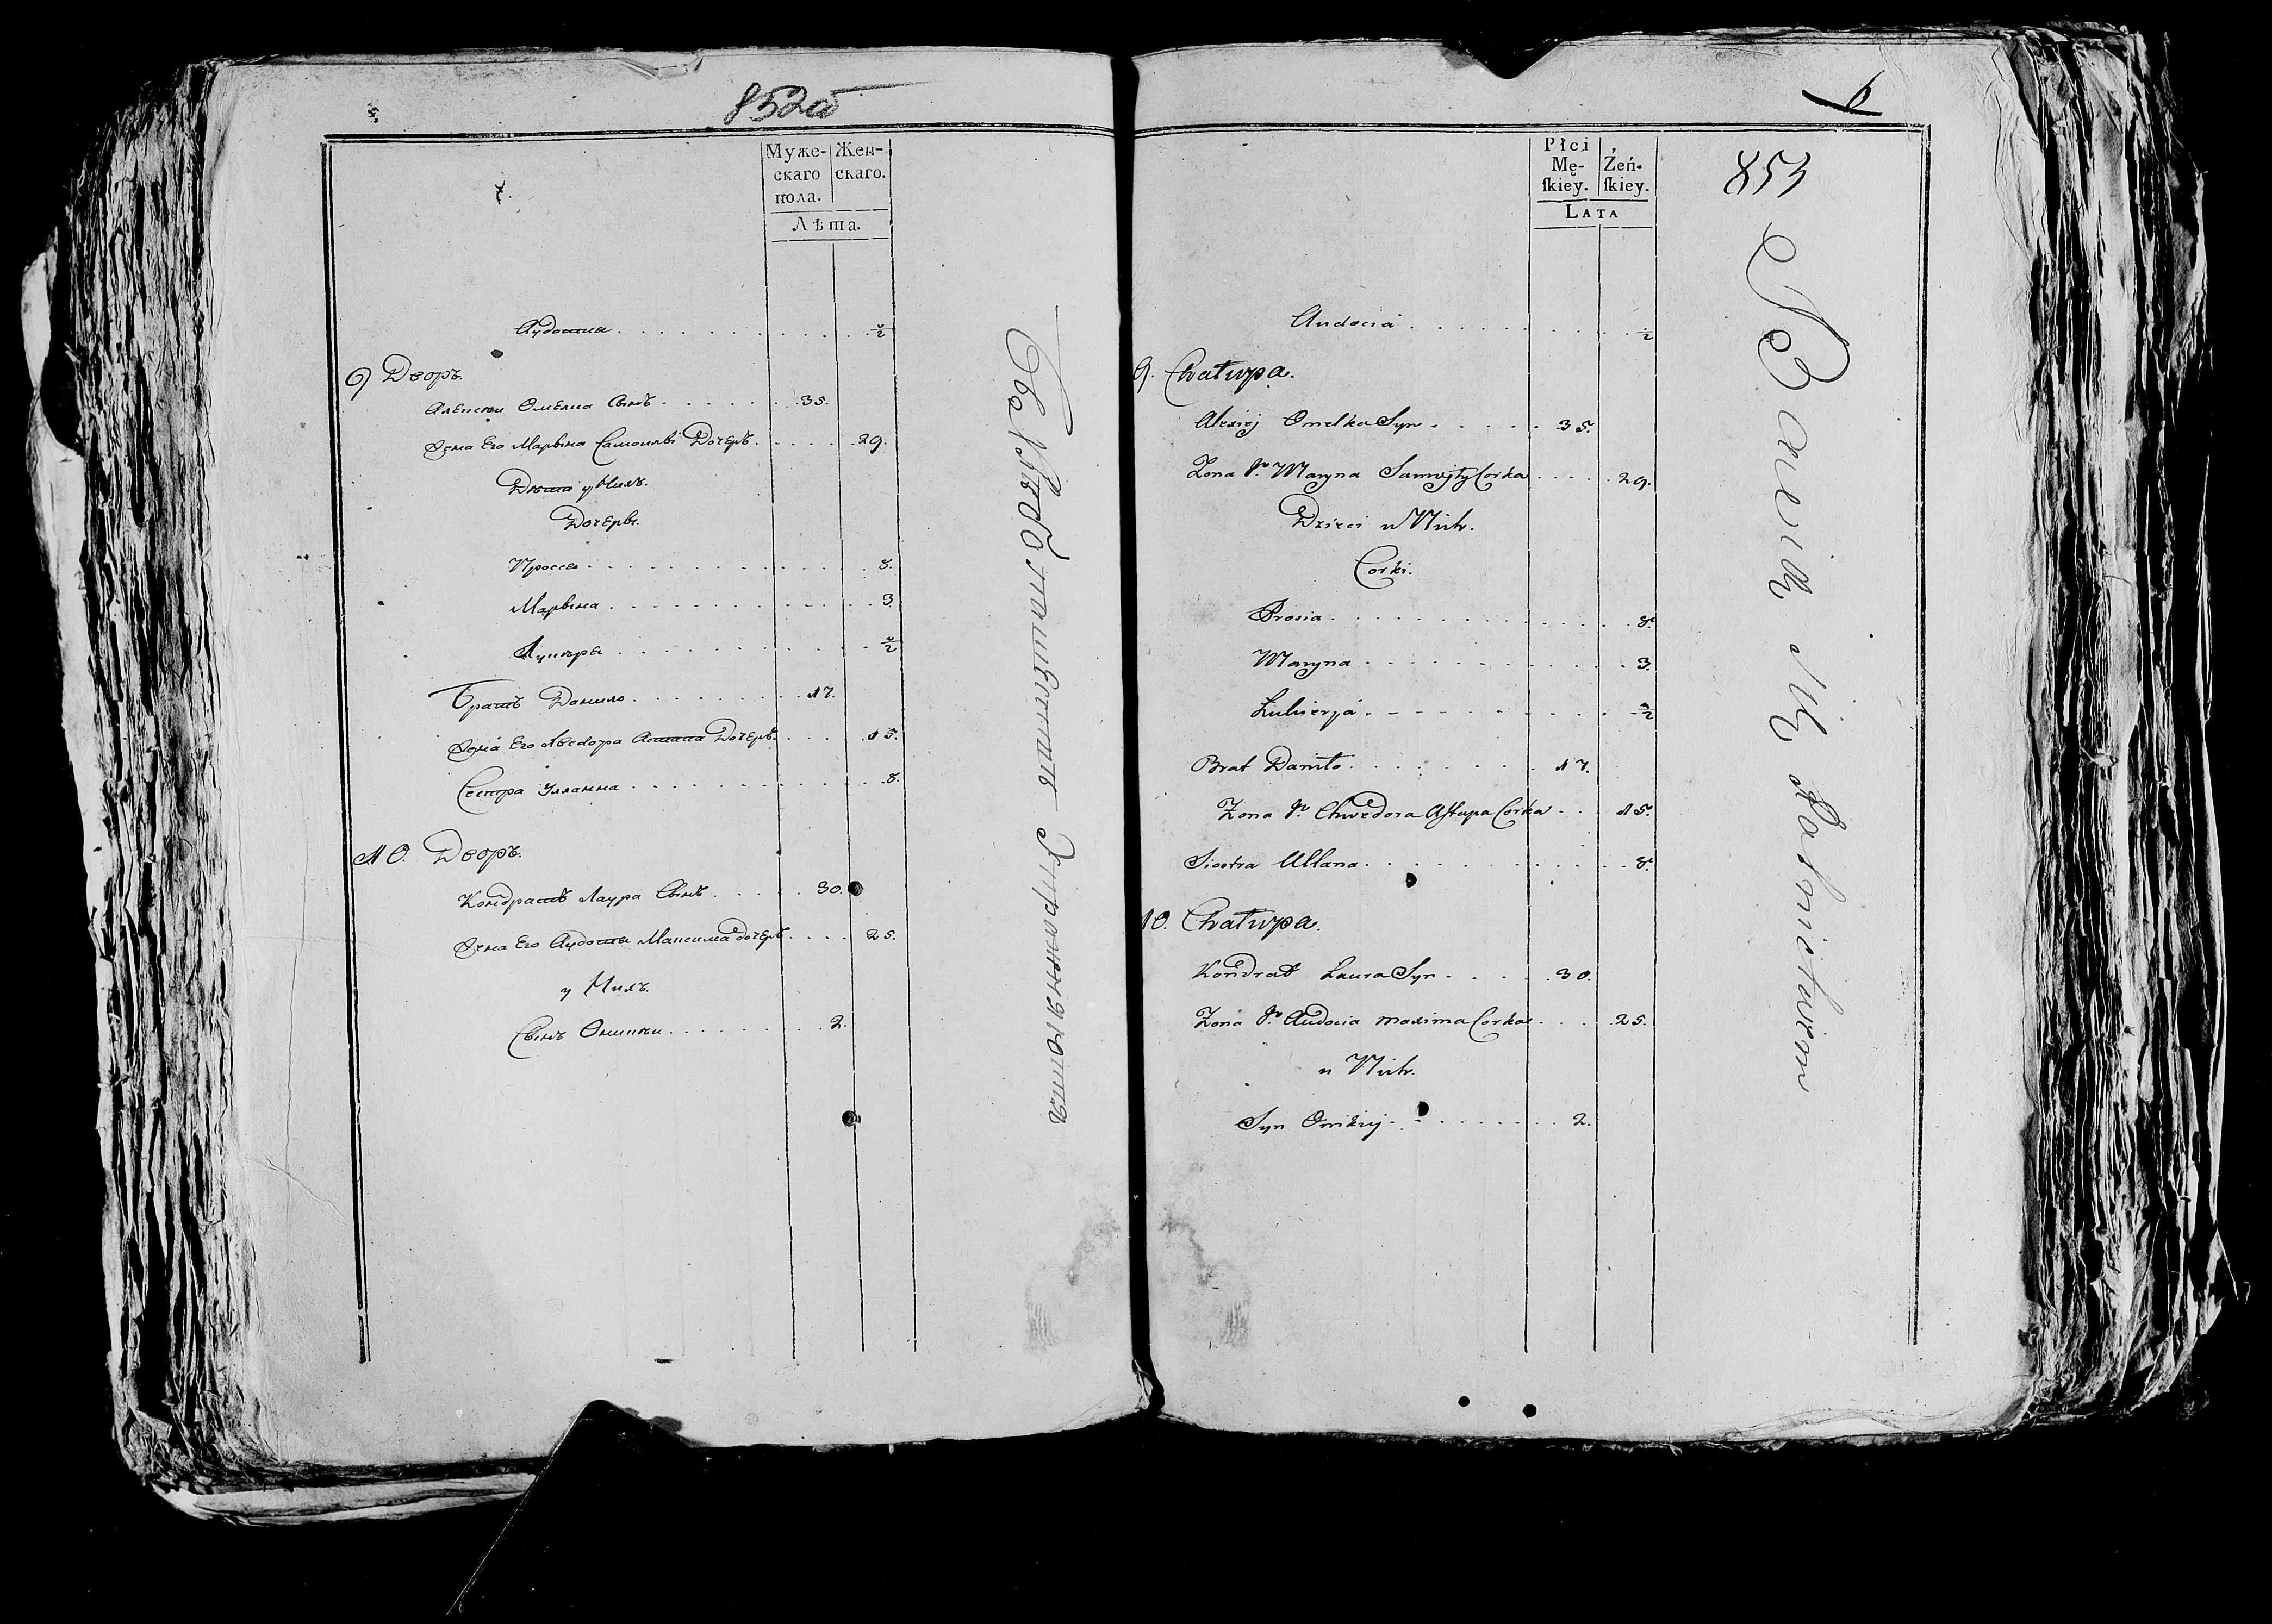 5.
852об
7.
Муже-
скаго
пола.
Жен-
скаго.
Лѣта.
Аудотья . . . ½
9 Дворъ.
Алексѣи Омелка Сынъ . . . 35.
Жена Его Марьина Самоилы Дочерь . . . 29.
Дѣти у Нихъ.
Дочерьи.
Прося . . . 8.
Марьина . . . 3.
Лукѣря . . . ½
Братъ Данило . . . 17.
Жена Его Хведора Астапа Дочерь . . . 15.
Сестра Улланна . . . 8.
10. Дворъ.
Кондратъ Лаура Сынъ . . . 30.
Жена Его Аудотья Максима дочерь . . . 25.
у Нихъ.
Сынъ Оникѣи . . . 2.
6
853
Płci
Mę-
ſkiey.
Żeń-
ſkiey.
LATA
Audocia . . . ½
9. Chałupa.
Alexiej Omelka Syn . . . 35.
Zona Jo Maryna Samoyły Corka . . . 29.
Dzieci u Nich.
Corki.
Prosia . . . 8.
Maryna . . . 3.
Łukierja . . . ½
Brat Daniło . . . 17.
Zona Jo Chwedora Astapa Corka . . . 15.
Siostra Ullana . . . 8.
10. Chałupa.
Kondrat Łaura Syn . . . 30.
Zona Jo Audocia Maxima Corka . . . 25.
u Nich.
Syn Onikiej . . . 2.